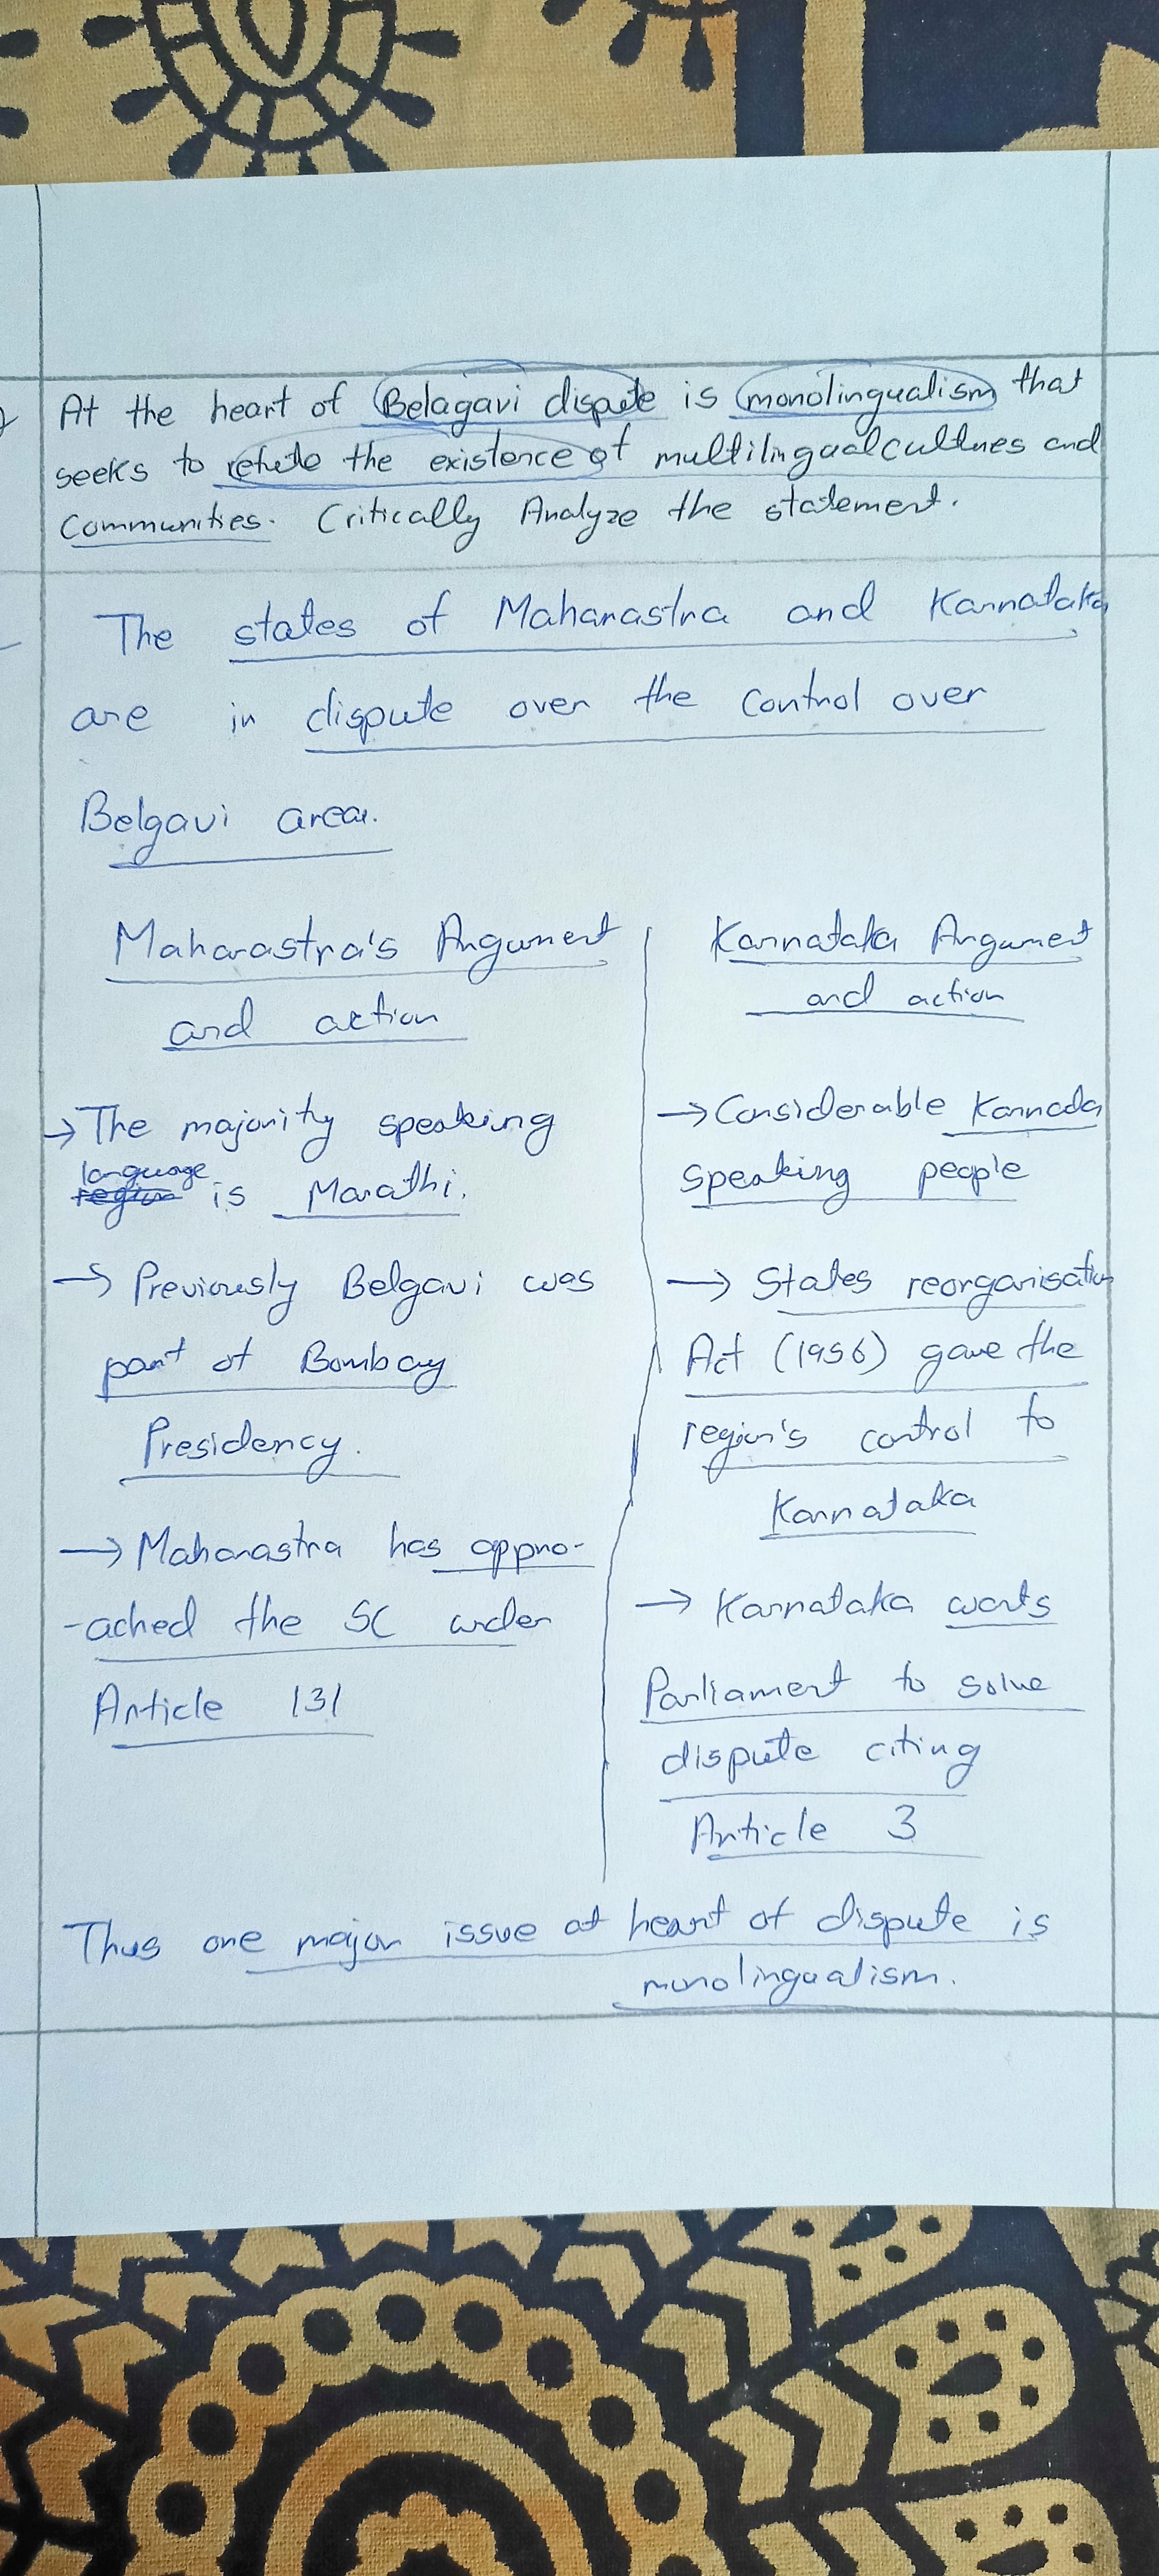 At the heart of Belagavi dispute is monolingualism that
seeks to refute the existence of multilingual cultures and
Communities. Critically Analyze the statement.
The states of Maharastra and Karnataka
are in dispute over the control over
Belgavi area.
Maharastra's Argument
and action
→ The majority speaking
language
is Marathi.
→ Previously Belgavi was
part of Bombay
Presidency.
→ Maharastra has appro-
-ached the SC under
Article 131
Karnataka Argument
and action
→ Considerable Kannada
speaking people
→ States reorganisation
Act (1956) gave the
region's control to
Karnataka
→ Karnataka wants
Parliament to solve
dispute citing
Article 3
Thus one major issue at heart of dispute is
monolingualism.